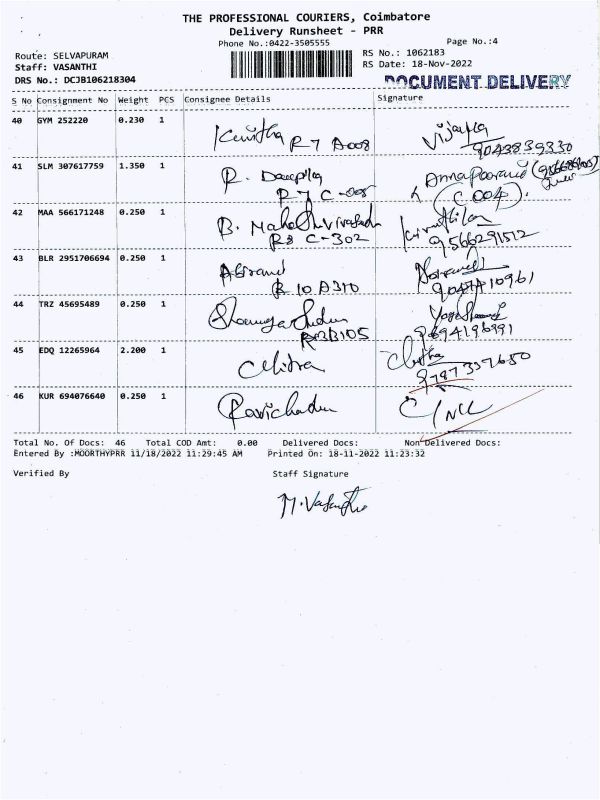 THE PROFESSIONAL COURIERS, Coimbatore
Delivery Runsheet - PRR
Phone No.:0422-3505555
Page No.:4
Route: SELVAPURAM
RS No.: 1062183
Staff: VASANTHI
RS Date: 18-Nov-2022
DRS No.: DCJB106218304
DOCUMENT DELIVERY
S No Consignment No Weight PCS Consignee Details Signature
40 GYM 252220 0.230 1
R 7 A008
9043839330
41 SLM 307617759 1.350 1
R.
R 7 C-008
Annapoorani
(C 004).
42 MAA 566171248 0.250 1
B.
R8 C-302
9566291512
43 BLR 2951706694 0.250 1
Abirami
R 10 A310
44 TRZ 45695489 0.250 1
8694196991
45 EDQ 12265964 2.200 1
Chitra
Chitra
46 KUR 694076640 0.250 1
Total No. Of Docs: 46 Total COD Amt: 0.00 Delivered Docs: Non Delivered Docs:
Entered By :MOORTHYPRR 11/18/2022 11:29:45 AM Printed On: 18-11-2022 11:23:32
Verified By
Staff Signature
M. Vasanthi